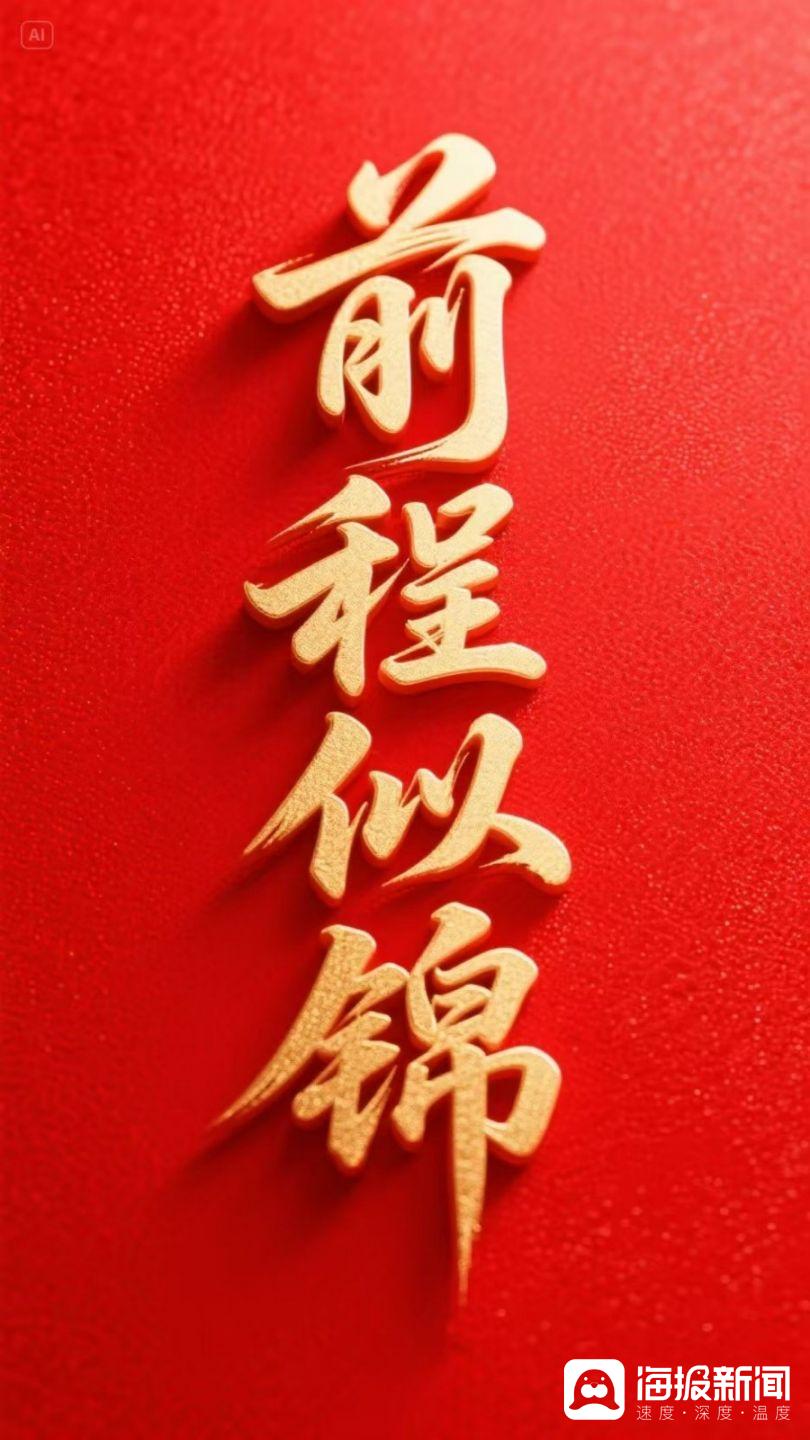 AI
前程似锦
海报新闻
速度·深度·温度